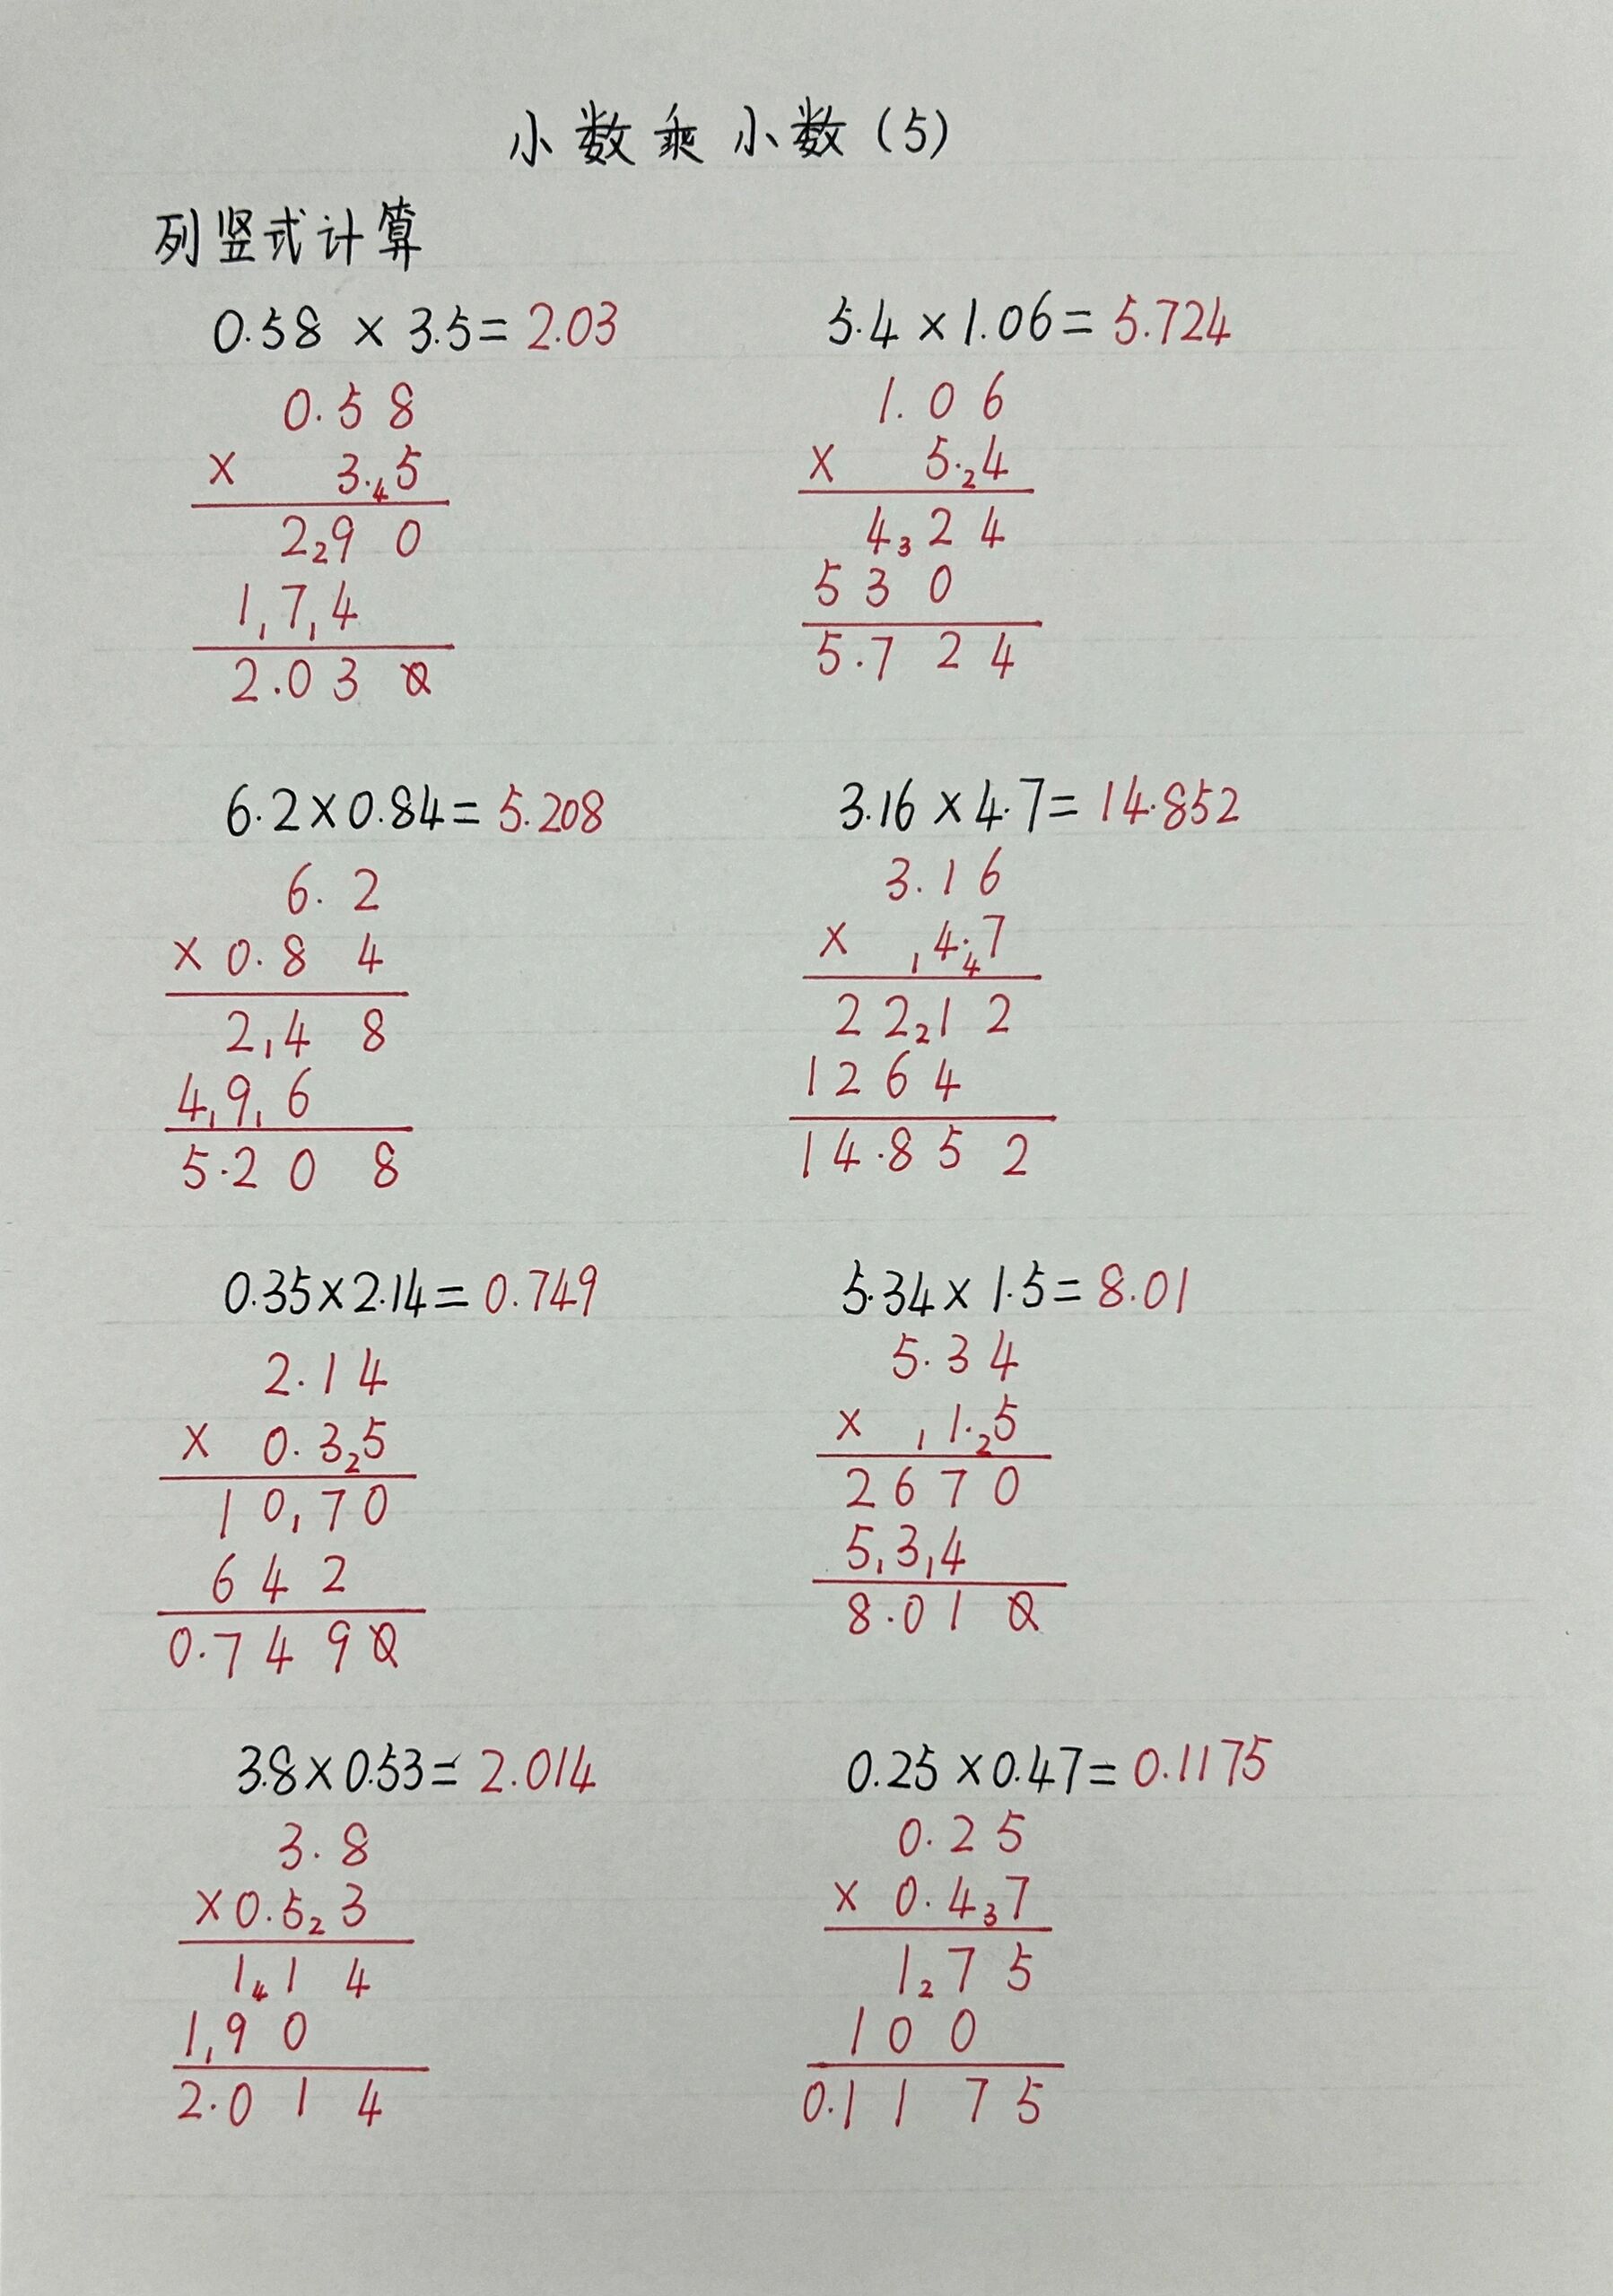 小数乘小数(5)
列竖式计算
0.58 × 3.5 = 2.03
0.58
× 3.45
2290
1,7,4
2.030
5.4 × 1.06 = 5.724
1.06
× 5.24
4324
530
5.724
6.2×0.84= 5.208
6.2
×0.84
2,48
4,9,6
5.208
3.16×4.7= 14.852
3.16
× ,4.47
22212
1264
14.852
0.35×2.14= 0.749
2.14
× 0.325
10,70
642
0.7490
5.34×1.5= 8.01
5.34
× ,1.25
2670
5,3,4
8.010
3.8×0.53= 2.014
3.8
×0.523
1414
1,90
2.014
0.25×0.47= 0.1175
0.25
× 0.437
1275
100
0.1175